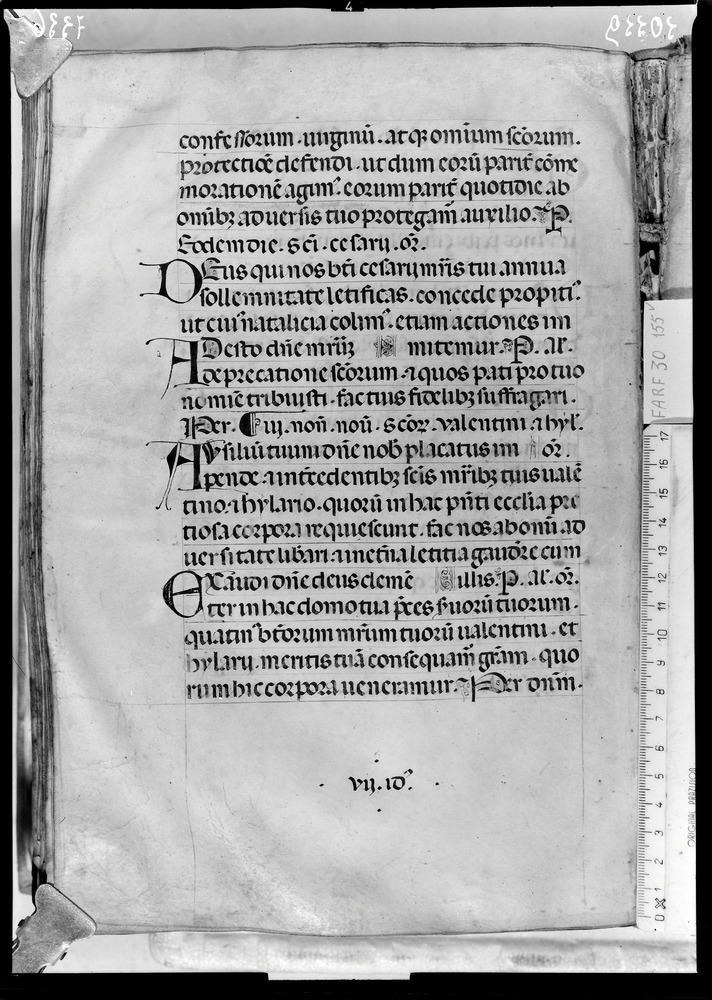 confessorum . uirginū . atqꝫ omnium sc̄orum .
protectiōe defendi . ut dum eorū parit̄ cōme
morationē agim᷒ . eorum parit̄ quotidie ab
omībꝫ aduersis tuo protegam̄ auxilio . P .
Eodem die . sc̄i . cesarij . or̄ .
DEus qui nos bt̄i cesarij mr̄is tui annua
sollemnitate letificas . concede propiti᷒ .
ut cui᷒ natalicia colim᷒ . etiam actiones im
ADesto dn̄e mr̄iꝫ mitemur . P . al̄ .
deprecatione sc̄orum . ⁊ quos pati pro tuo
nomīe tribuisti . fac tuis fidelibꝫ suffragari .
Per . iij . noñ . noū . sc̄oꝝ . valentini . ⁊ hyl̄ .
AVxiliū tuum dn̄e nob̄ placatus im or̄ .
pende . ⁊ int̄cedentibꝫ sc̄is mr̄ibꝫ tuis ualē
tino . ⁊ hylario . quorū in hac pn̄ti ecclīa pre
tiosa corpora requiescunt . fac nos ab omī ad
uersitate lib̄ari . ⁊ in et̄na letitia gaud̄e cum
EXaudi dn̄e deus clemē illis . P . al̄ . or̄ .
ter in hac domo tua p̄ces s̄uorū tuorum .
quatin᷒ bt̄orum mr̄um tuorū ualentini . et
hylarij . meritis tuā consequam̄ gr̄am . quo
rum hic corpora ueneramur . Per dn̄m .
. vij . id᷒ .
FARF 30 155v
0 1 2 3 4 5 6 7 8 9 10 11 12 13 14 15 16 17
ORIGINAL PRÄZISION